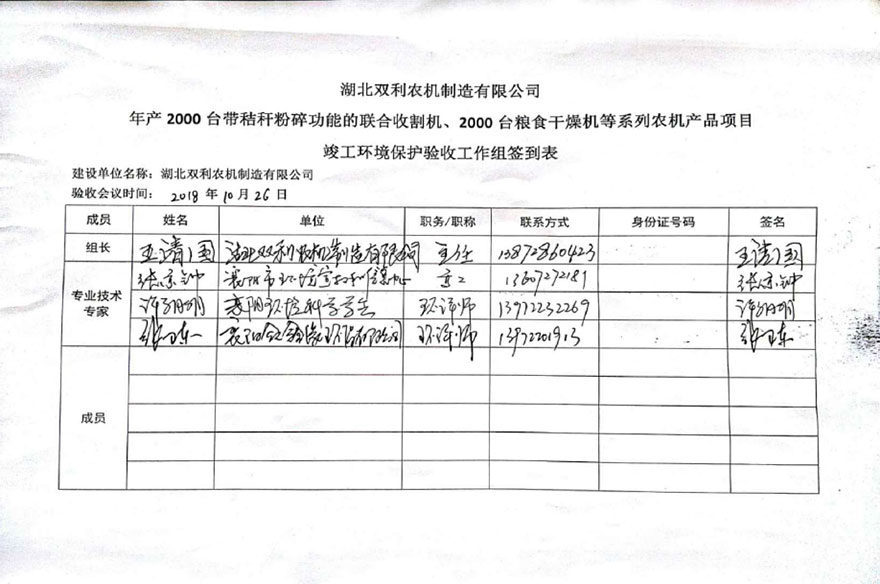 湖北双利农机制造有限公司
年产 2000 台带秸秆粉碎功能的联合收割机、2000 台粮食干燥机等系列农机产品项目
竣工环境保护验收工作组签到表
建设单位名称：湖北双利农机制造有限公司
验收会议时间： 2018 年 10 月 26 日
成员 姓名 单位 职务/职称 联系方式 身份证号码 签名
组长 王清国 湖北双利农机制造有限公司 主任 13872860423 王清国
张京钟 襄阳市环境宣教和信息中心 高工 13607272181 张京钟
专业技术
专家
襄阳环境科学学会 环评师 13972232269
环评师
成员